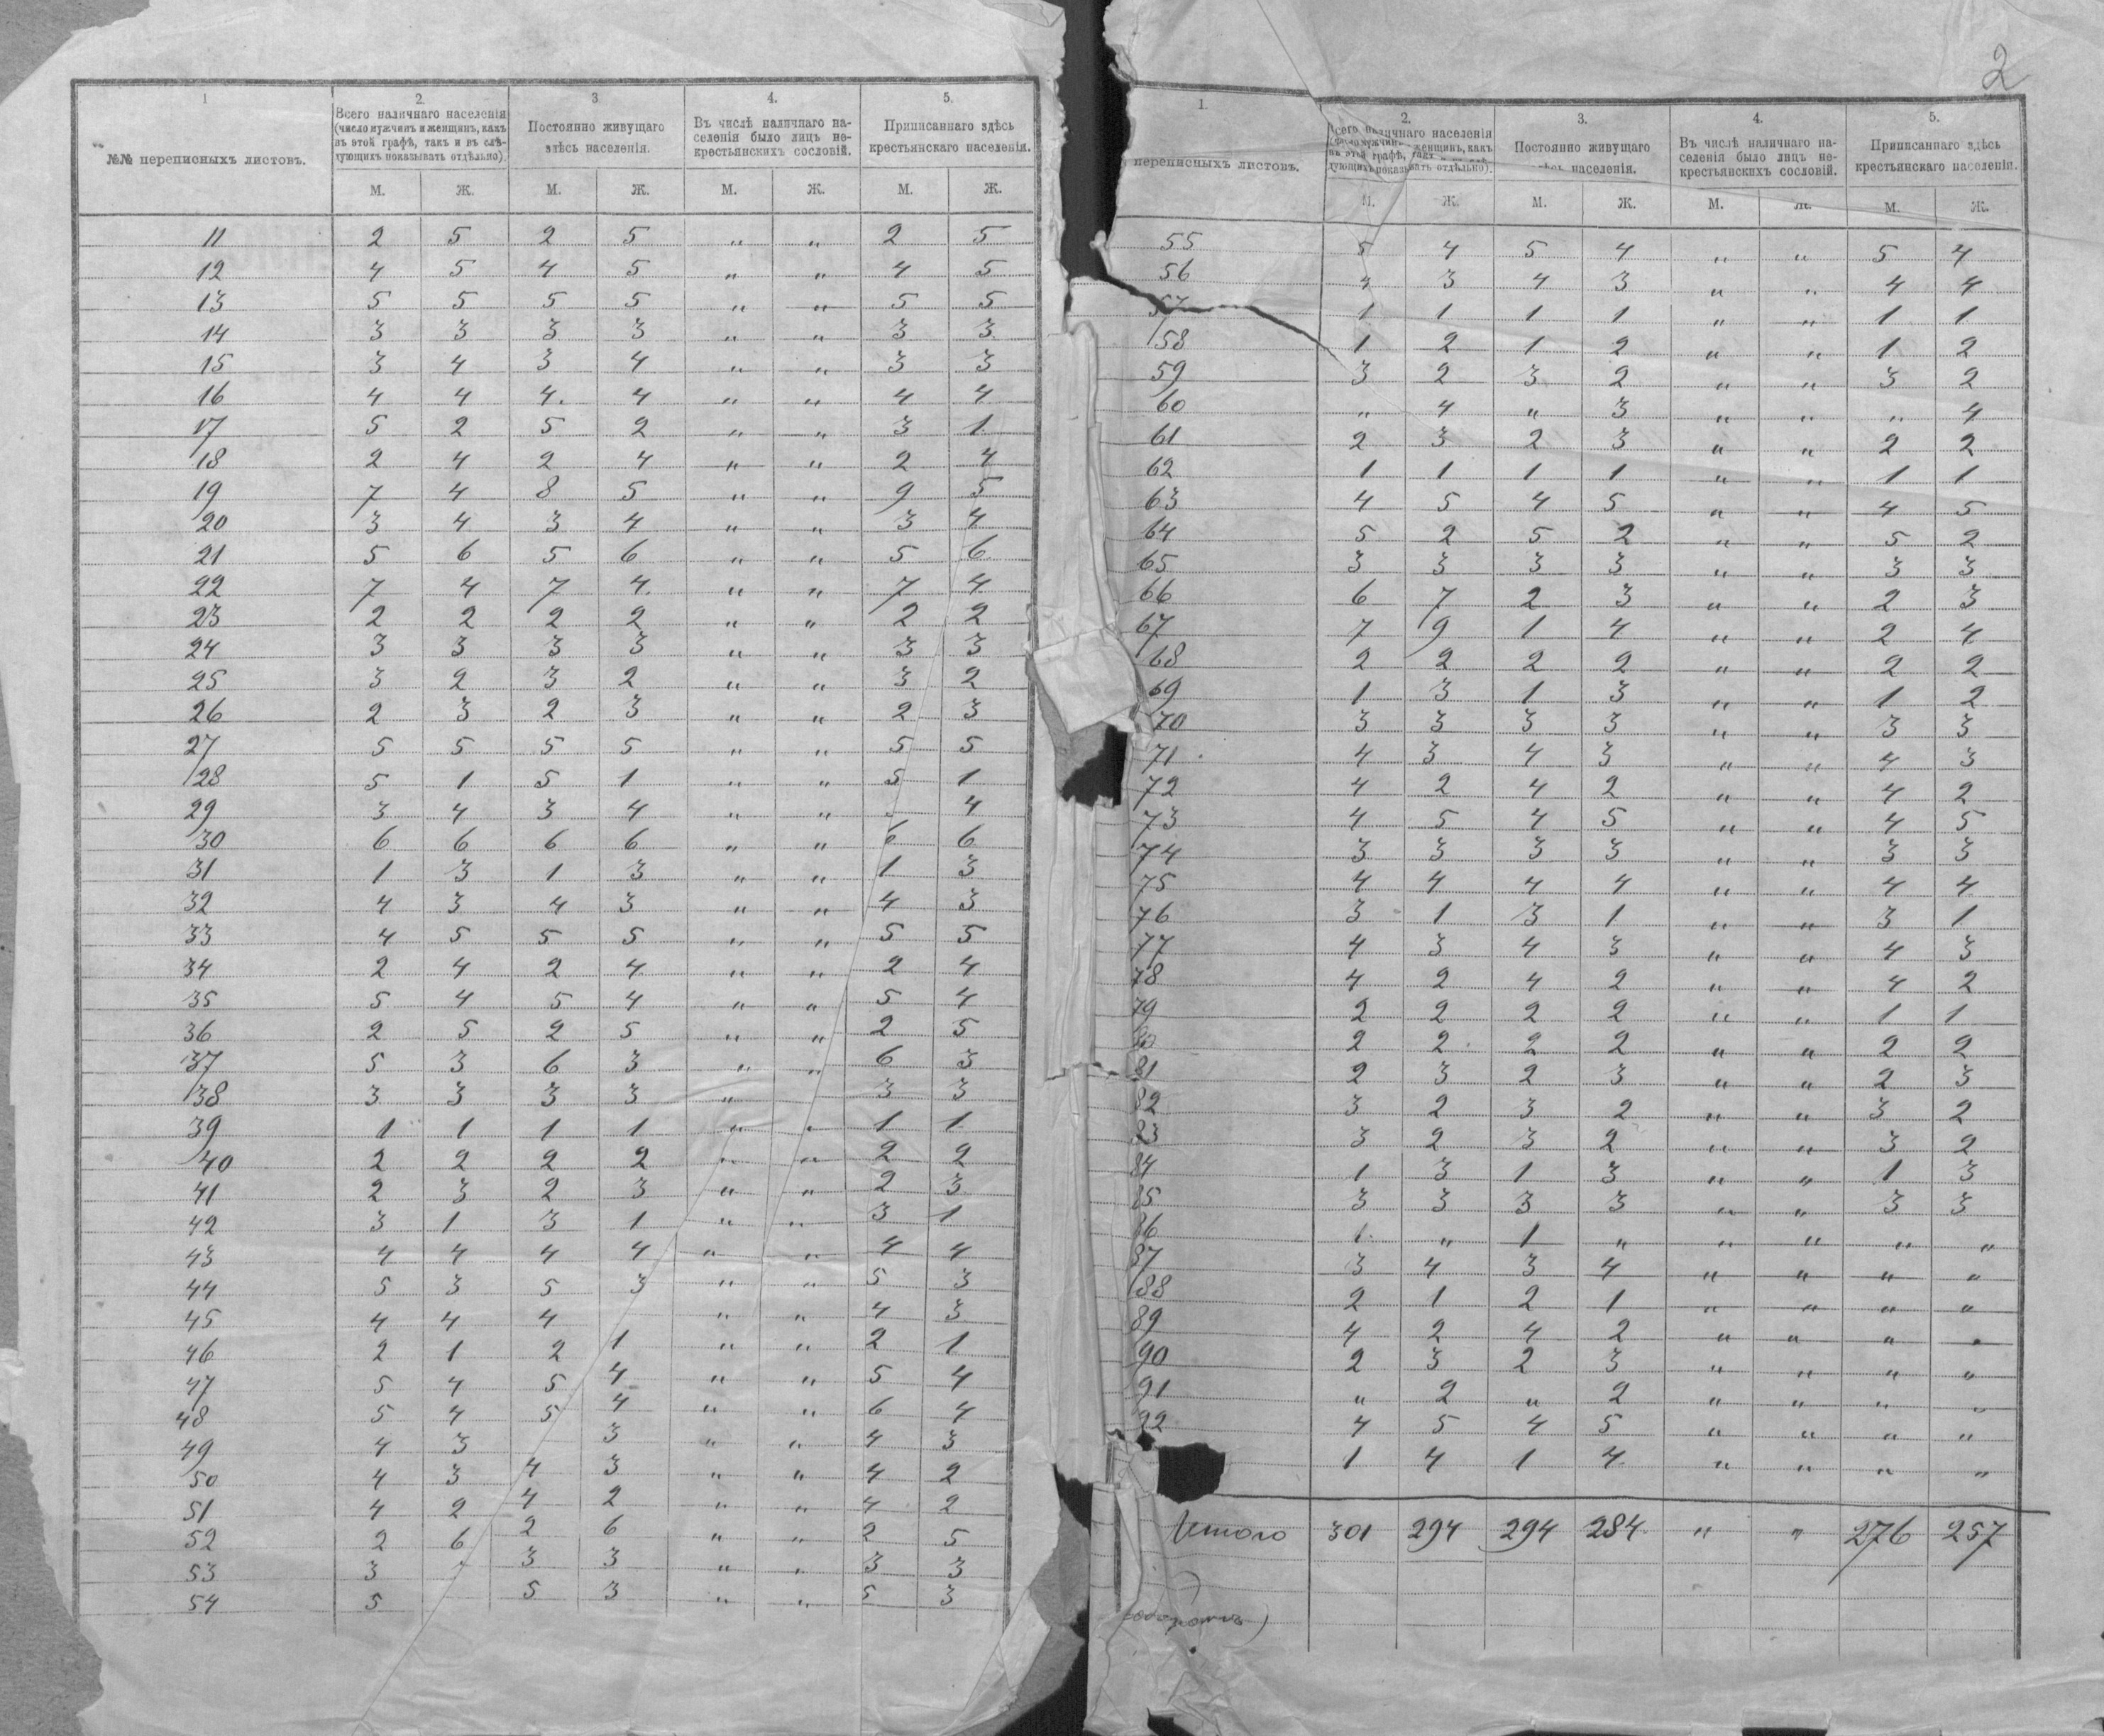 2
1
2.
3
4.
5.
№№ переписныхъ листовъ.
Всего наличнаго населенія
(число мужчинъ и женщинъ, какъ
въ этой графѣ, такъ и въ слѣ-
дующихъ показывать отдѣльно).
Постоянно живущаго
здѣсь населенія.
Въ числѣ наличнаго на-
селенія было лицъ не-
крестьянскихъ сословій.
Приписаннаго здѣсь
крестьянскаго населенія.
М. Ж. М. Ж. М. Ж. М. Ж.
11 2 5 2 5 „ „ 2 5
12 4 5 4 5 „ „ 4 5
13 5 5 5 5 „ „ 5 5
14 3 3 3 3 „ „ 3 3
15 3 4 3 4 „ „ 3 3
16 4 4 4. 4 „ „ 4 4
17 5 2 5 2 „ „ 3 1
18 2 4 2 4 „ „ 2 4
19 7 4 8 5 „ „ 9 5
20 3 4 3 4 „ „ 3 4
21 5 6 5 6 „ „ 5 6
22 7 4 7 4 „ „ 7 4
23 2 2 2 2 „ „ 2 2
24 3 3 3 3 „ „ 3 3
25 3 2 3 2 „ „ 3 2
26 2 3 2 3 „ „ 2 3
27 5 5 5 5 „ „ 5 5
28 5 1 5 1 „ „ 5 1
29 3 4 3 4 „ „ 4
30 6 6 6 6 „ „ 6 6
31 1 3 1 3 „ „ 1 3
32 4 3 4 3 „ „ 4 3
33 4 5 5 5 „ „ 5 5
34 2 4 2 4 „ „ 2 4
35 5 4 5 4 „ „ 5 4
36 2 5 2 5 „ „ 2 5
37 5 3 6 3 „ „ 6 3
38 3 3 3 3 „ 3 3
39 1 1 1 1 „ „ 1 1
40 2 2 2 2 „ „ 2 2
41 2 3 2 3 „ „ 2 3
42 3 1 3 1 „ „ 3 1
43 4 4 4 4 „ „ 4 4
44 5 3 5 3 „ „ 5 3
45 4 4 4 „ „ 4 3
46 2 1 2 1 „ „ 2 1
47 5 4 5 4 „ „ 5 4
48 5 4 5 4 „ „ 6 4
49 4 3 3 „ „ 4 3
50 4 3 4 3 „ „ 4 2
51 4 2 4 2 „ „ 4 2
52 2 6 2 6 „ „ 2 5
53 3 3 3 „ „ 3 3
54 5 5 3 „ „ 5 3
1.
2.
3.
4.
5.
переписныхъ листовъ.
Всего наличнаго населенія
женщинъ, какъ
въ этой графѣ, такъ
дующихъ показывать отдѣльно).
Постоянно живущаго
здѣсь населенія.
Въ числѣ наличнаго на-
селенія было лицъ не-
крестьянскихъ сословій.
Приписаннаго здѣсь
крестьянскаго населенія.
М. Ж. М. Ж. М. Ж. М. Ж.
55 5 4 5 4 „ „ 5 4
56 4 3 4 3 „ „ 4 4
57 1 1 1 1 „ „ 1 1
58 1 2 1 2 „ „ 1 2
59 3 2 3 2 „ „ 3 2
60 „ 4 „ 3 „ „ „ 4
61 2 3 2 3 „ „ 2 2
62 1 1 1 1 „ „ 1 1
63 4 5 4 5 „ „ 4 5
64 5 2 5 2 „ „ 5 2
65 3 3 3 3 „ „ 3 3
66 6 7 2 3 „ „ 2 3
67 7 9 1 4 „ „ 2 4
68 2 2 2 2 „ „ 2 2
69 1 3 1 3 „ „ 1 2
70 3 3 3 3 „ „ 3 3
71 4 3 4 3 „ „ 4 3
72 4 2 4 2 „ „ 4 2
73 4 5 4 5 „ „ 4 5
74 3 3 3 3 „ „ 3 3
75 4 4 4 4 „ „ 4 4
76 3 1 3 1 „ „ 3 1
77 4 3 4 3 „ „ 4 3
78 4 2 4 2 „ „ 4 2
79 2 2 2 2 „ „ 1 1
80 2 2 2 2 „ „ 2 2
81 2 3 2 3 „ „ 2 3
82 3 2 3 2 „ „ 3 2
83 3 2 3 2 „ „ 3 2
84 1 3 1 3 „ „ 1 3
85 3 3 3 3 „ „ 3 3
86 1 „ 1 „ „ „ „ „
87 3 4 3 4 „ „ „ „
88 2 1 2 1 „ „ „ „
89 4 2 4 2 „ „ „ „
90 2 3 2 3 „ „ „ „
91 „ 2 „ 2 „ „ „ „
92 4 5 4 5 „ „ „ „
1 4 1 4 „ „ „ „
Итого 301 294 294 284 „ „ 276 257